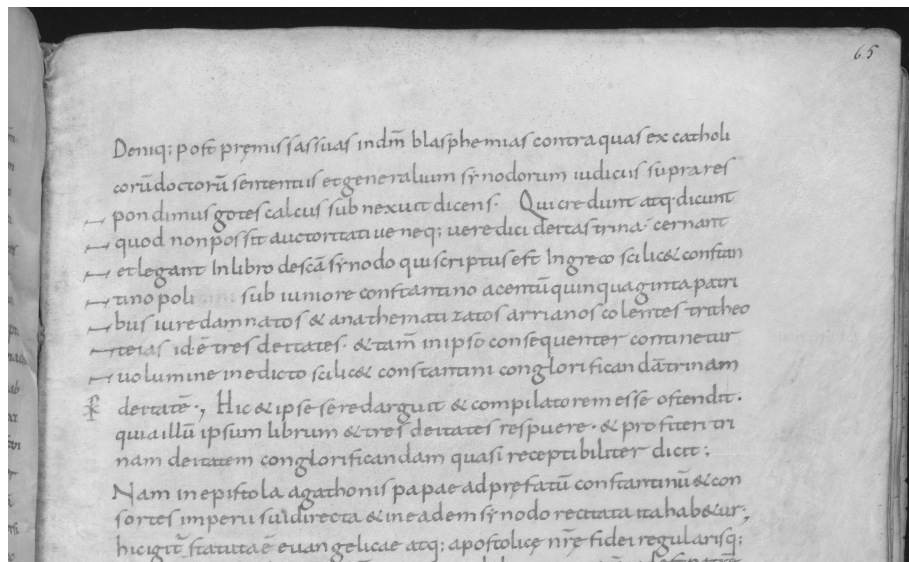 65
Deniq; post pręmissas suas in dm̄ blasphemias contra quas ex catholi
corū doctorū sententiis et generalium synodorum iudiciis supra res
pondimus gotescalcus subnexuit dicens. Qui credunt atq. dicunt
quod non possit auctoritative neq; vere dici deitas trina. cernant
et legant In libro de scā synodo qui scriptus est In greco scilic& constan
tinopoli sub iuniore constantino a centū quinquaginta patri
bus iure damnatos & anathematizatos arrianos colentes tritheo
teias id ē tres deitates. & tam̄ in ipso consequenter continetur
volumine in edicto scilic& constantini conglorificandā trinam
deitatē., Hic & ipse se redarguit & compilatorem esse ostendit.
quia illū ipsum librum & tres deitates respuere. & profiteri tri
nam deitatem conglorificandam quasi receptibiliter dicit;
Nam in epistola agathonis papae ad pręfatū constantinū & con
sortes imperii sui directa & in eadem synodo recitata ita hab&ur;
hic igit̄ statuta ē euangelicae atq; apostolicę nr̄e fidei regularisq;